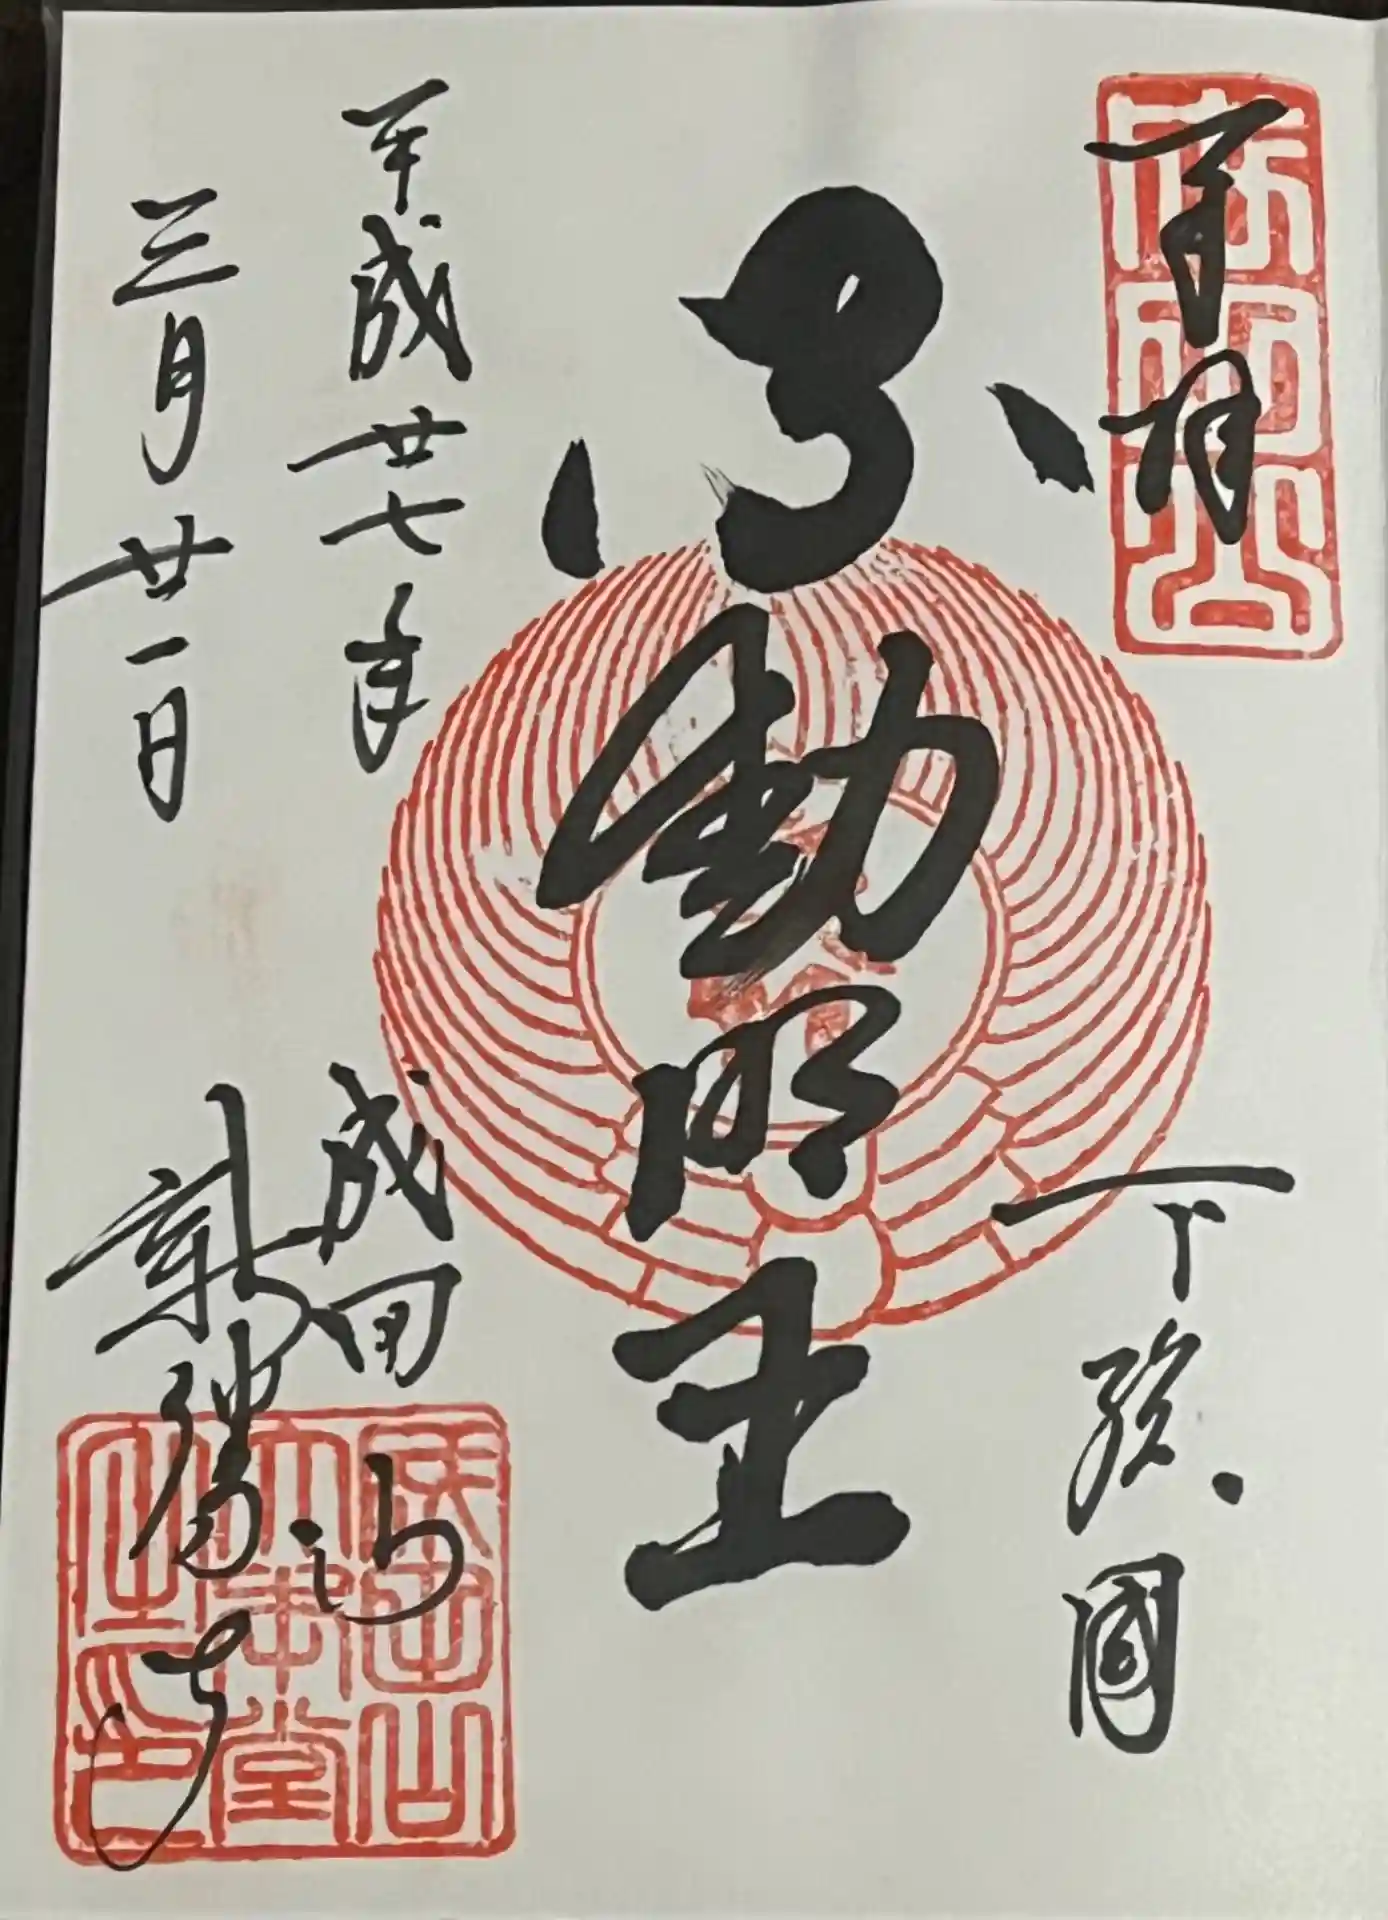 奉拝
下総國
不動明王
平成廿七年
三月廿一日
成田山
新勝寺
成田山
大本堂